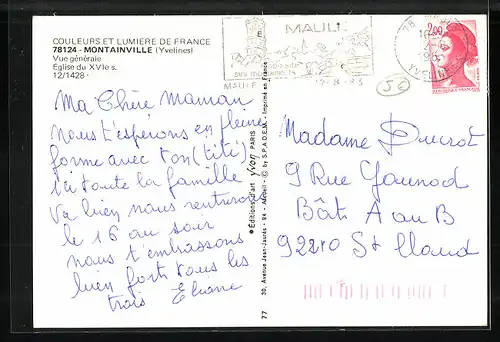 COULEURS ET LUMIERE DE FRANCE
78124 - MONTAINVILLE (Yvelines)
Vue générale
Eglise du XVIe s.
12/1428
Ma Chère Maman
nous t'espérons en pleine
forme avec ton (tité)
ici toute la famille
va bien nous rentrerons
le 16 au soir
nous t'embrassons
bien fort tous les
trois
Editions d'art yvon PARIS © by S.P.A.D.E.M. - Imprimé en France
30, Avenue Jean-Jaurès - 94 - Arcueil
77
MAULE
ses monuments
MAULE
78
YVELINES
2,00
REPUBLIQUE FRANÇAISE
56
Madame Ducrot
9 Rue Gounod
Bât A au B
92210 St Cloud